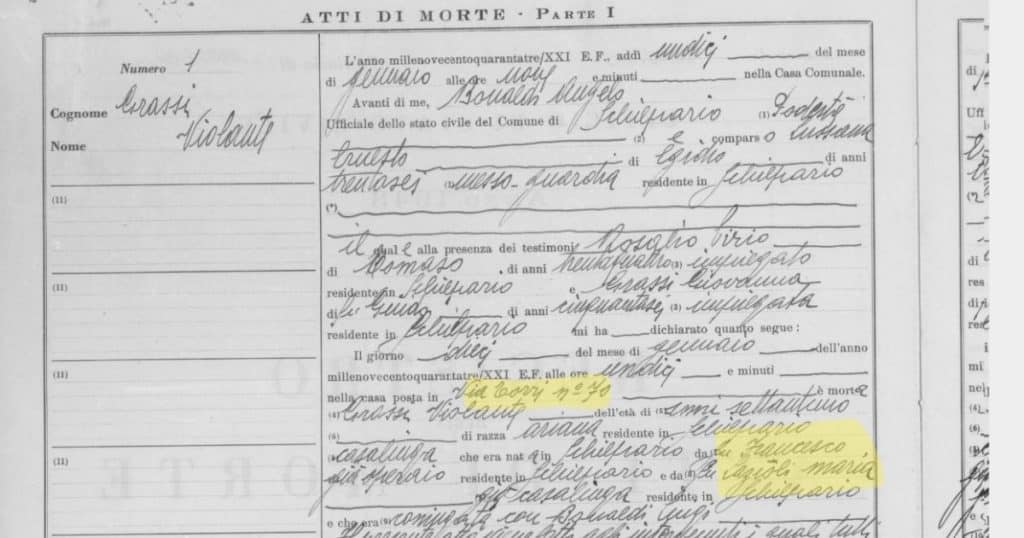 ATTI DI MORTE - PARTE I
Numero 1
Cognome Grassi
Nome Violante
(11)
(11)
(11)
(11)
L'anno millenovecentoquarantatre/XXI E.F., addì undici del mese
di gennaio alle ore nove e minuti nella Casa Comunale.
Avanti di me, Bonaldi Angelo
Ufficiale dello stato civile del Comune di Schilpario (1) Podestà
(2) è comparso Lussana
Ernesto di Egidio di anni
trentasei messo-guardia residente in Schilpario
(*)
il quale alla presenza dei testimoni Pirio
di Tomaso di anni trentaquattro (3) impiegato
residente in Schilpario e Grassi Giovanna
di anni cinquantasei (3) impiegata
residente in Schilpario mi ha dichiarato quanto segue:
Il giorno dieci del mese di gennaio dell'anno
millenovecentoquarantatre/XXI E.F. alle ore undici e minuti
nella casa posta in Via Torri n° 70 è morta
(4) Grassi Violante dell'età di (5) anni settantuno
(6) di razza ariana residente in Schilpario
casalinga che era nata in Schilpario da fu Francesco
già operaio residente in Schilpario e da fu Maria
già casalinga residente in Schilpario
e che era (9) coniugata con Bonaldi Luigi